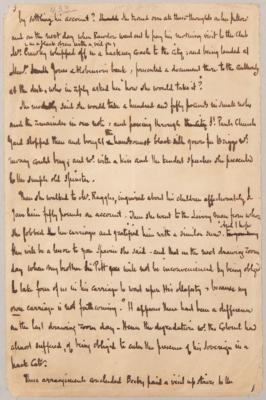 by settling his account? Should she turned over all these thoughts in her pillow
and on the next day when Rawdon went out to pay his morning visit to the Club
in a plain gown with a veil on
Mrs Crawley whipped off in a hackney coach to the city: and being landed at
Messrs Jones & Robinson's bank, presented a document there to the authority
at the desk, who in reply asked her how she would take it?
She modestly said she would take a hundred and fifty pounds in small notes
and the remainder in one note: and passing through St Pauls Church
Yard stopped there and bought the handsomest black silk gown for Briggs wh.
money could buy; and wh. with a kiss and the kindest speeches she presented
to the simple old Spinster.
Then she walked to Mr. Raggles, inquired about his children affectionately &
gave him fifty pounds on account. Then she went to the Livery man from whom
she jobbed her carriages and gratified him with a similar sum.
this will be a lesson to you Spavin she said - and that on the next drawing room
day when my brother Sir Pitt goes will not be inconvenienced by being obliged
to take four of us in his carriage to wait upon His Majesty, because my
own carriage is not forthcoming. It appears there had been a difference
on the last drawing room day - Hence the degradation wh. the Colonel had
almost suffered, of being obliged to enter the presence of his Sovereign in a
hack Cab.
These arrangements concluded Becky paid a visit up stairs to the